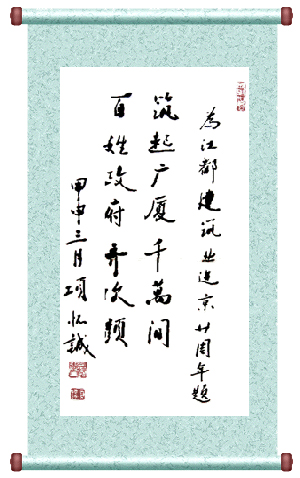 為江都建筑业进京廿周年题
筑起广厦千萬间
百姓政府齐欢颜
甲申三月 项怀誠